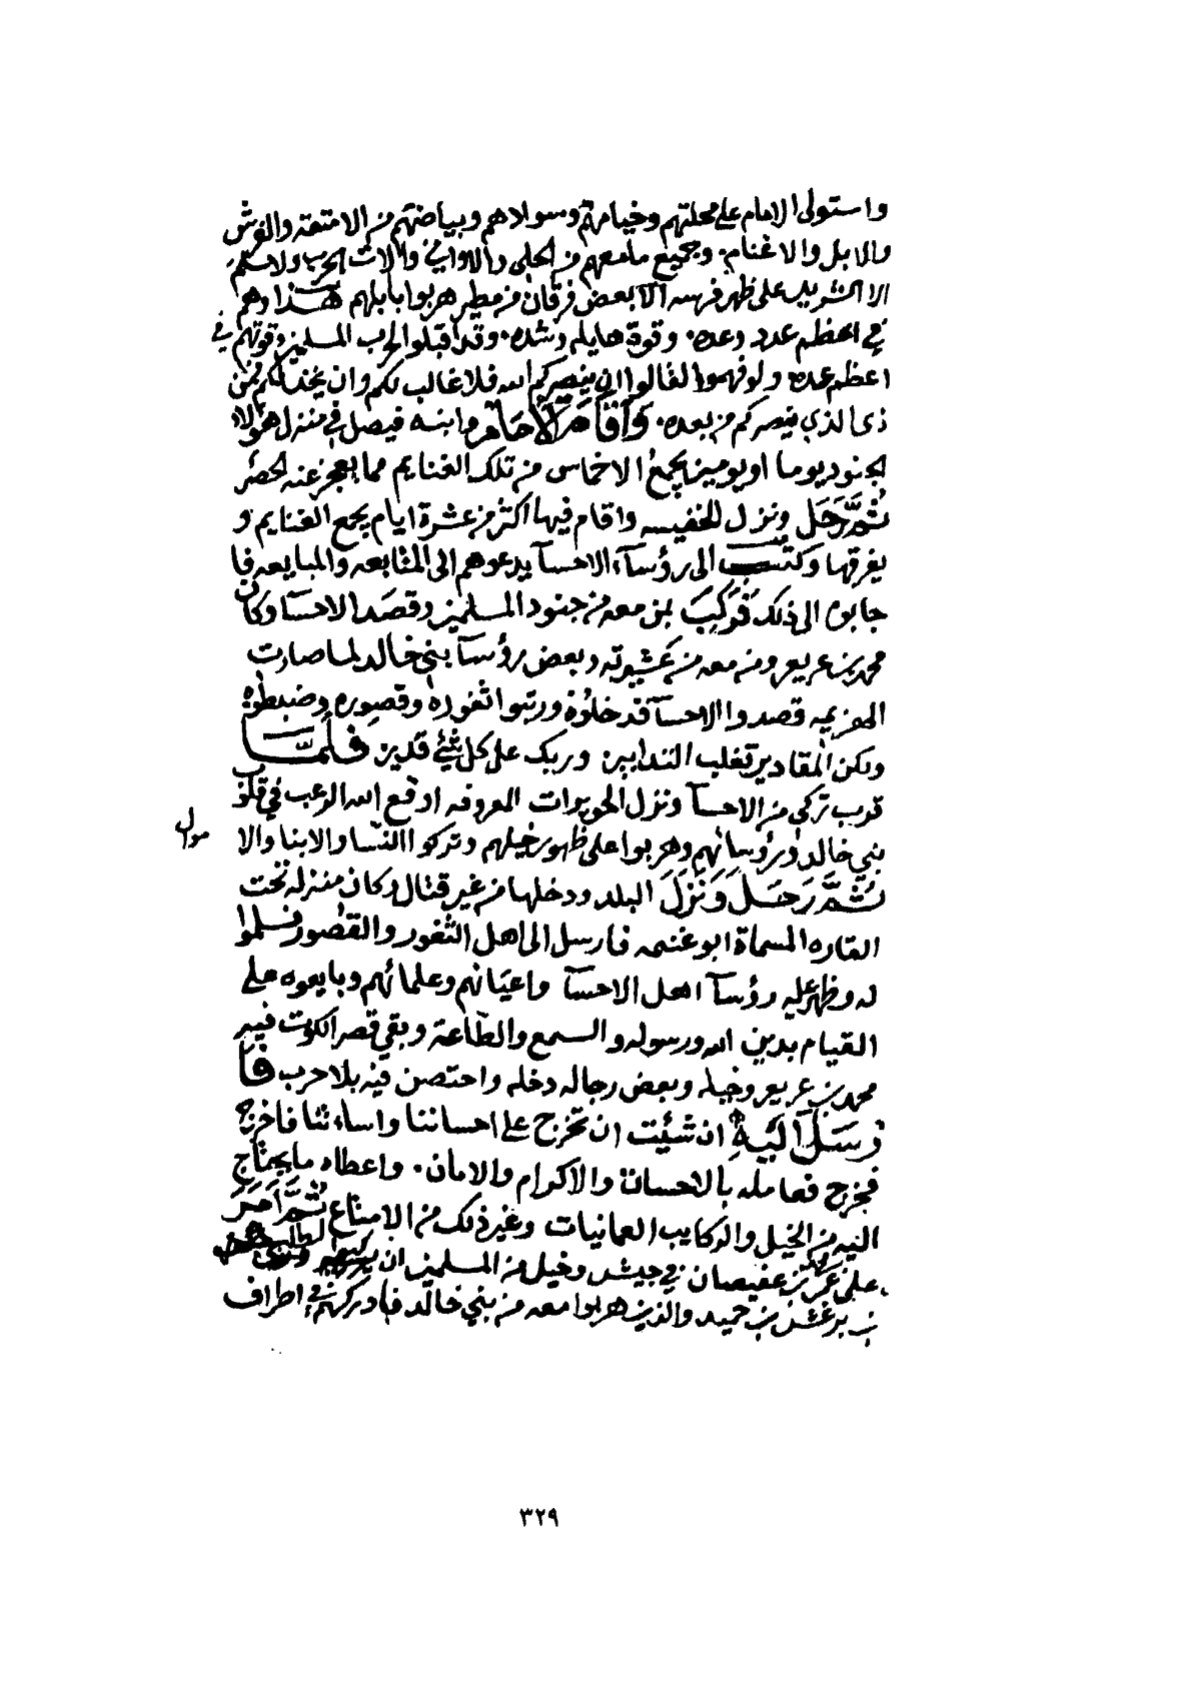 واستولى الامام على محلتهم وخيامهم وسوادهم وبياضهم من الامتعة والفرش
والابل والاغنام. وجميع مامعهم من الحلي والاواني والات الحرب ولا سلم
الا الشريد على ظهر فرسه الا بعض فرقان من مطير هربوا بابلهم هذا وهم
في اعظم عدد وعده. وقوة هايله وشده. وقد اقبلوا لحرب المسلمين وقوتهم في
اعظم عده ولو فهموا لقالوا ان ينصركم الله فلا غالب لكم وان يخذلكم فمن
ذى الذي ينصركم من بعده. وأقام الامام وابنه فيصل في منزل هولاء
الجنود يوما او يومين يجمع الاخماس من تلك الغنايم مما يعجز عنه الحصر
ثم رحل ونزل الخفيسه واقام فيها اكثر من عشرة ايام يجمع الغنايم و
يفرقها وكتب الى رؤسآء الاحسآ يدعوهم الى المتابعه والمبايعه فا
جابوه الى ذلك فركب بمن معه من جنود المسلمين وقصد الاحسآ وكان
محمد بن عريعر ومن معه من عشيرته وبعض رؤسآ بني خالد لما صارت
الهزيمه قصدوا الاحسآ فدخلوه ورتبوا ثغوره وقصوره وضبطوه
ولكن المقادير تغلب التدابير وربك على كل شيٍ قدير فلمّا
قرب تركي من الاحسآ ونزل الحويرات المعروفه اوقع الله الرعب في قلوب
بني خالد ورؤسائهم وهربوا على ظهور خيلهم وتركوا النسا والابنا والا
موال
ثم رحل ونزل البلد ودخلها من غير قتال وكان منزله تحت
القاره المسماة ابو غنيمه فارسل الى اهل الثغور والقصور فسلموا
له وظهر عليه رؤسآ اهل الاحسآ واعيانهم وعلمائهم وبايعوه على
القيام بدين الله ورسوله والسمع والطاعة وبقي قصر الكوت فيه
محمد بن عريعر وخيله وبعض رجاله دخله واحتصن فيه بلا حرب فا
رسل اليه ان شئت ان تخرج على احساننا واساءتنا فاخرج
فخرج فعامله بالاحسان والاكرام والامان. واعطاه ما يحتاج
اليه من الخيل والركايب العمانيات وغير ذلك من الامتاع ثم أمر
على عمر بن عفيصان في جيش وخيل من المسلمين ان
بن برغش بن حميد والذين هربوا معه من بني خالد فادركهم في اطراف
٣٢٩